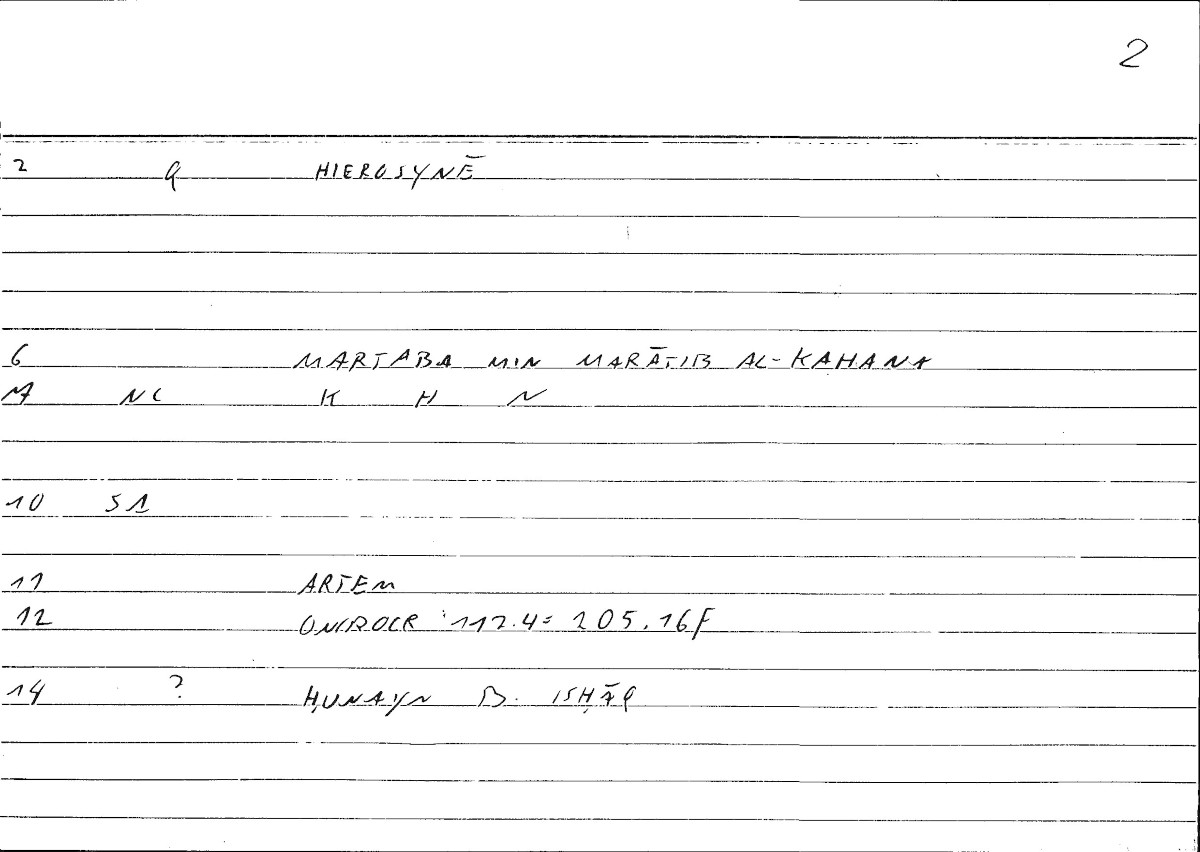 2
2 Q HIEROSYNĒ
6 MARTABA MIN MARĀTIB AL-KAHANA
7 NC K H N
10 S1
11 ARTEM
12 ONIROCR 112.4= 205.16F
14 ? ḤUNAYN B. ISḤĀQ